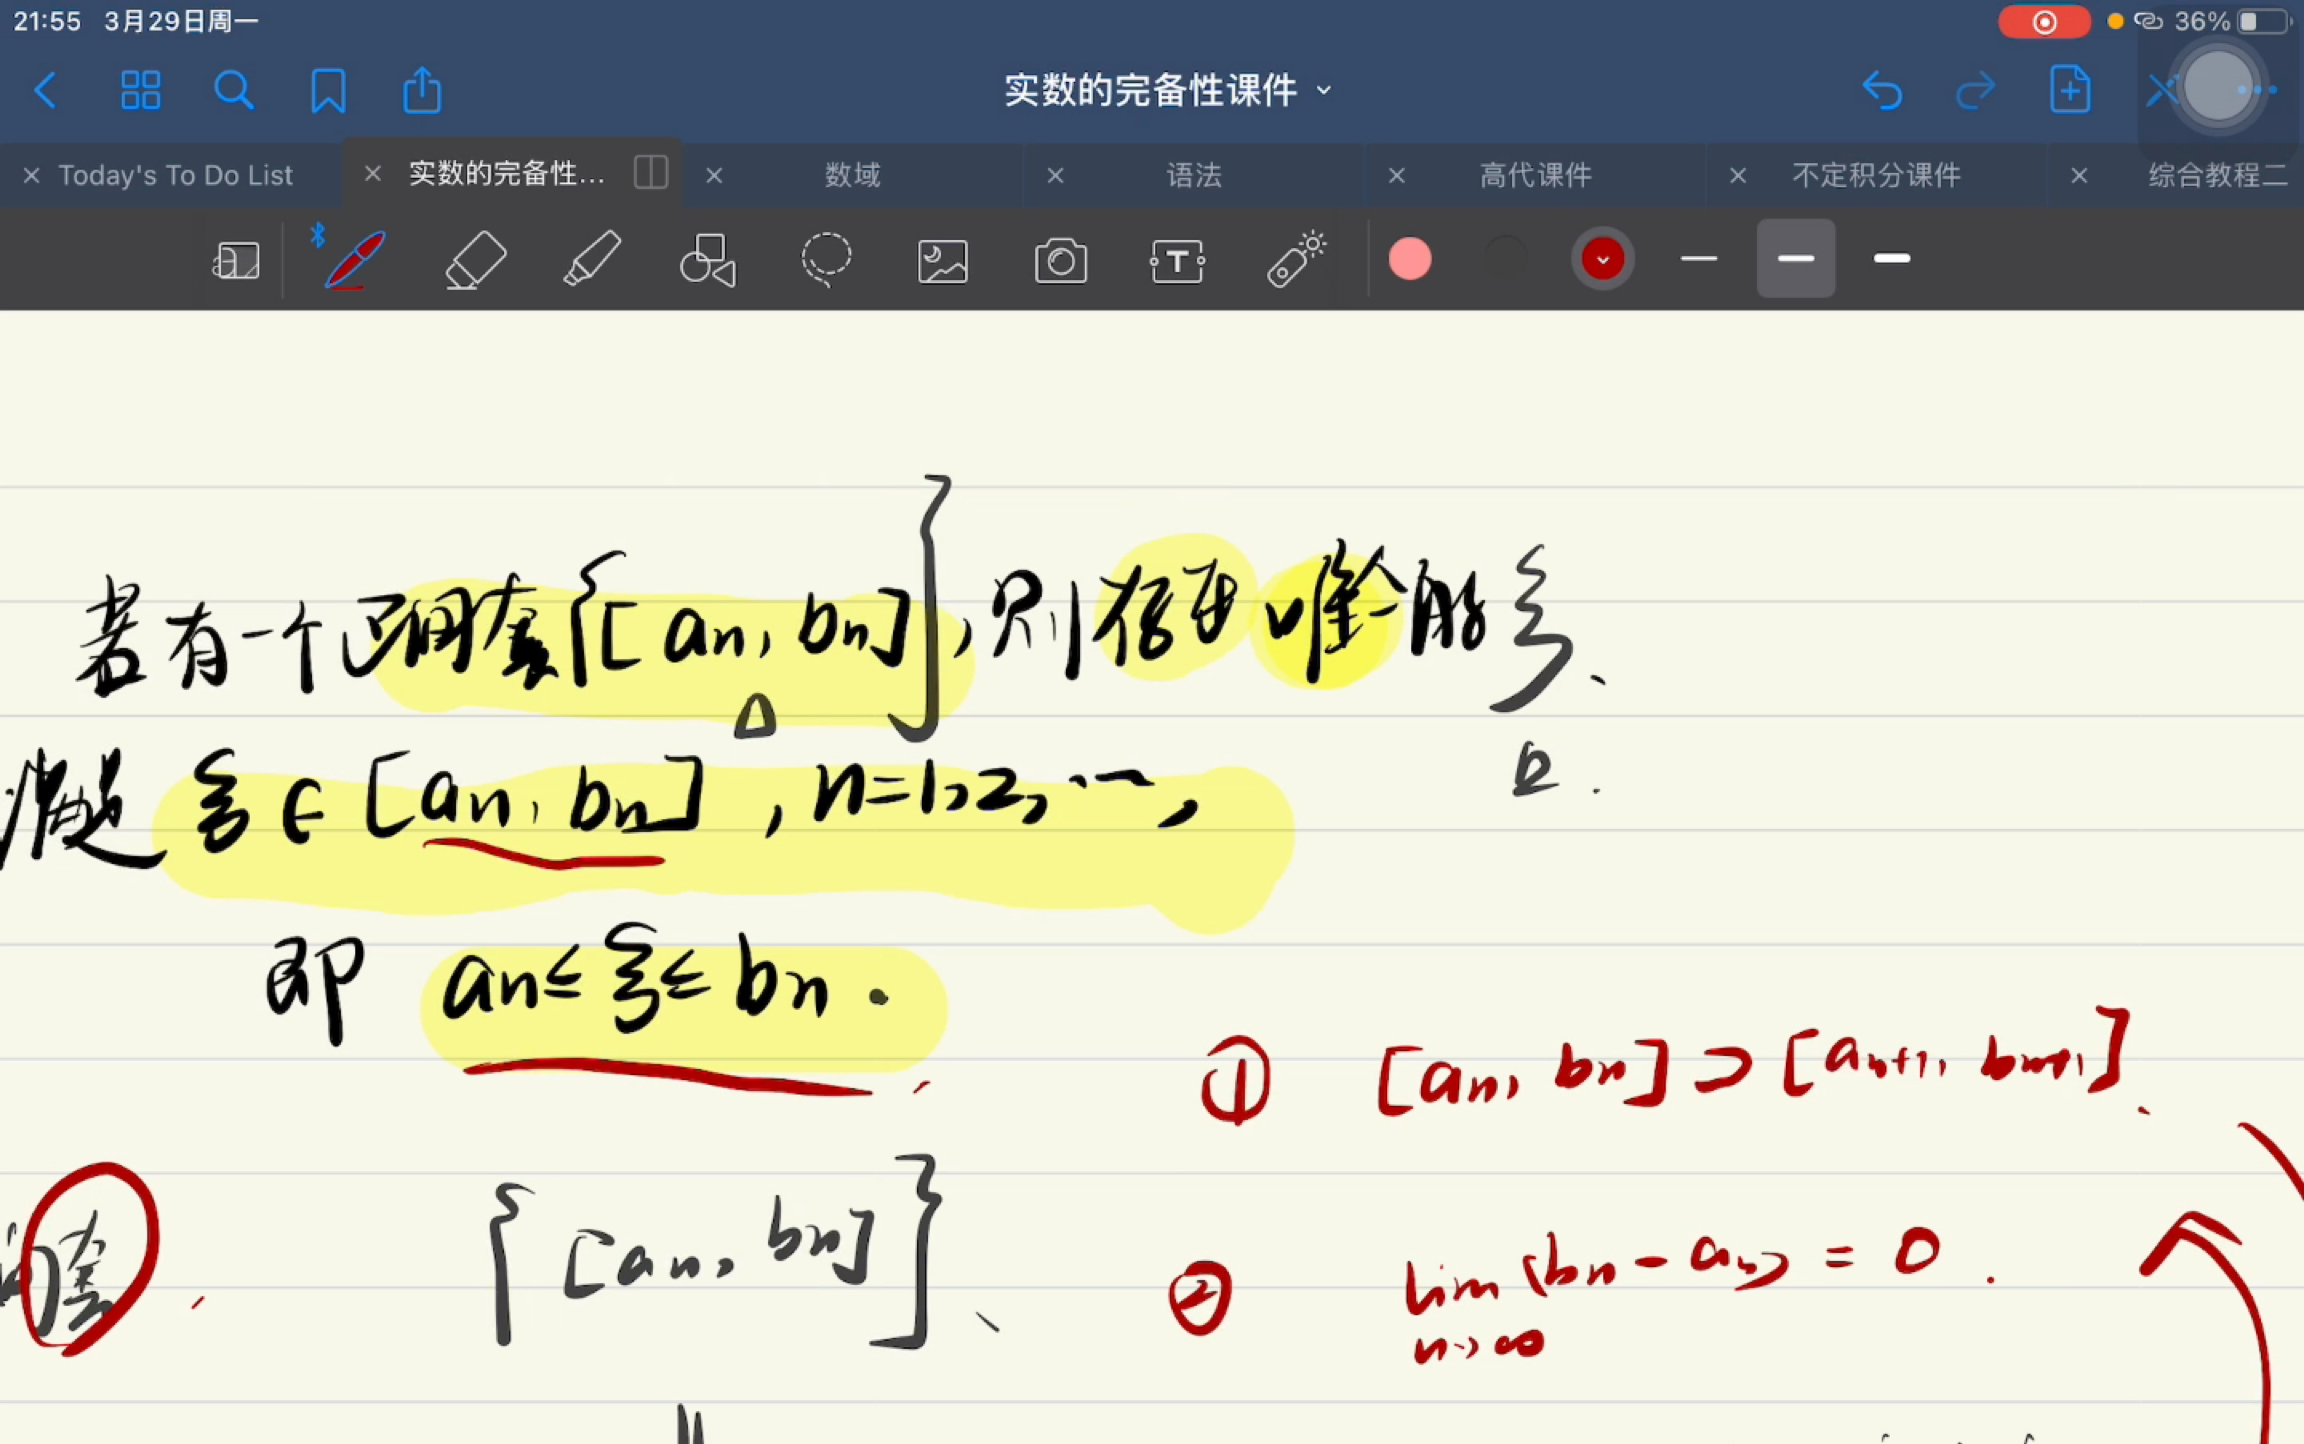 21:55 3月29日周一 36%
实数的完备性课件
Today's To Do List 实数的完备性... 数域 语法 高代课件 不定积分课件 综合教程二
若有一个区间套{[an, bn]}, 则存在唯一的ξ、
满足 ξ∈[an, bn], n=1,2,…,
即 an≤ξ≤bn.
① [an, bn]⊃[an+1, bn+1].
间套. {[an, bn]}、
② lim(bn-an)=0.
n→∞